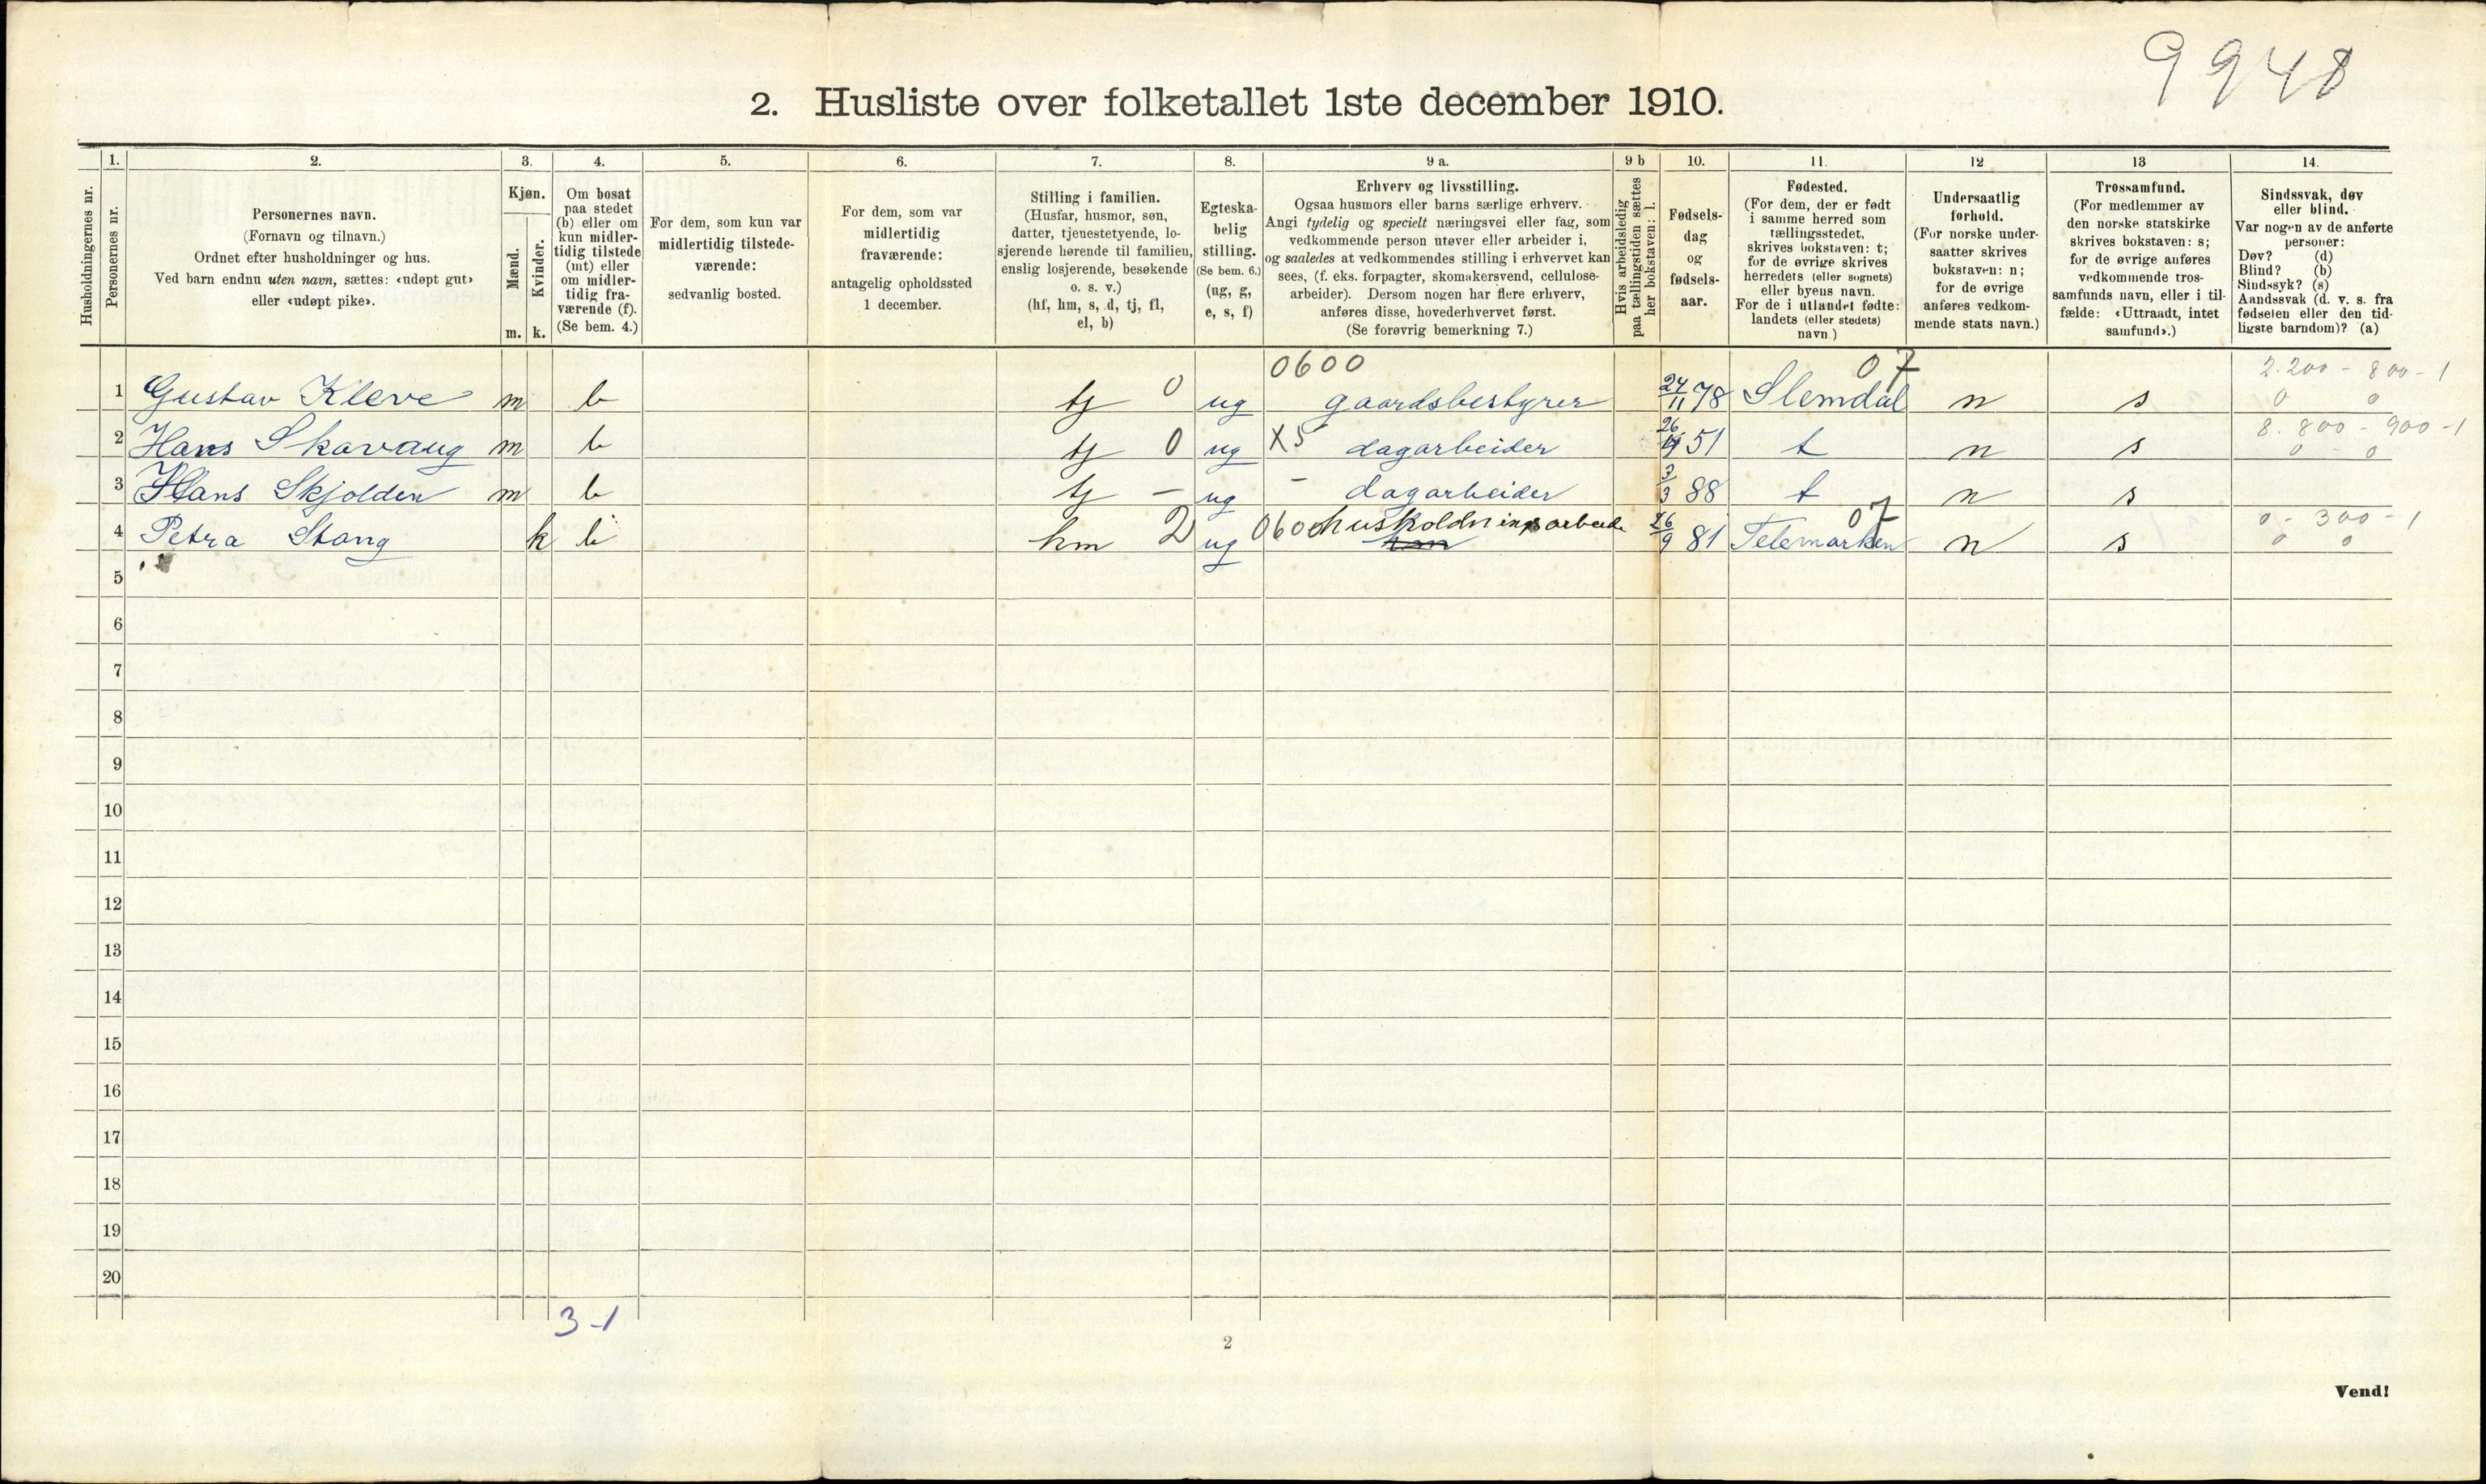 9948
2. Husliste over folketallet 1ste december 1910.
Husholdningernes nr.
1.
Personernes nr.
2.
Personernes navn.
(Fornavn og tilnavn.)
Ordnet efter husholdninger og hus.
Ved barn endnu uten navn, sættes: «udøpt gut»
eller «udøpt pike».
3.
Kjøn.
Mænd.
Kvinder.
m. k.
4.
Om bosat
paa stedet
(b) eller om
kun midler-
tidig tilstede
(mt) eller
om midler-
tidig fra-
værende (f).
(Se bem. 4.)
5.
For dem, som kun var
midlertidig tilstede-
værende:
sedvanlig bosted.
6.
For dem, som var
midlertidig
fraværende:
antagelig opholdssted
1 december.
7.
Stilling i familien.
(Husfar, husmor, søn,
datter, tjenestetyende, lo-
sjerende hørende til familien,
enslig losjerende, besøkende
o. s. v.)
(hf, hm, s, d, tj, fl,
el, b)
8.
Egteska-
belig
stilling.
(Se bem. 6.)
(ug, g,
e, s, f)
9 a.
Erhverv og livsstilling.
Ogsaa husmors eller barns særlige erhverv.
Angi tydelig og specielt næringsvei eller fag, som
vedkommende person utøver eller arbeider i,
og saaledes at vedkommendes stilling i erhvervet kan
sees, (f. eks. forpagter, skomakersvend, cellulose-
arbeider). Dersom nogen har flere erhverv,
anføres disse, hovederhvervet først.
(Se forøvrig bemerkning 7.)
9 b
Hvis arbeidsledig
paa tællingstiden sættes
her bokstaven: l.
10.
Fødsels-
dag
og
fødsels-
aar.
11.
Fødested.
(For dem, der er født
i samme herred som
tællingsstedet,
skrives bokstaven: t;
for de øvrige skrives
herredets (eller sognets)
eller byens navn.
For de i utlandet fødte:
landets (eller stedets)
navn.)
12
Undersaatlig
forhold.
(For norske under-
saatter skrives
bokstaven: n;
for de øvrige
anføres vedkom-
mende stats navn.)
13
Trossamfund.
(For medlemmer av
den norske statskirke
skrives bokstaven: s;
for de øvrige anføres
vedkommende tros-
samfunds navn, eller i til-
fælde: «Uttraadt, intet
samfund».)
14.
Sindssvak, døv
eller blind.
Var nogen av de anførte
personer:
Døv? (d)
Blind? (b)
Sindssyk? (s)
Aandssvak (d. v. s. fra
fødselen eller den tid-
ligste barndom)? (a)
0600 07 2.200 - 800 - 1
1 Gustav Kleve m b tj 0 ug gaardsbestyrer 24/11 78 Slemdal n s 0 0
8. 800 - 900 - 1
2 Hans Skavaug m b tj 0 ug X5 dagarbeider 26 51 t n s 0 - 0
3 Hans Skjolden m b tj - ug - dagarbeider 3/3 88 t n s
0600 husholdningsarbeide 07 0 - 300 - 1
4 Petra Stang k b hm 2 ug 26/9 81 Telemarken n s 0 0
5
6
7
8
9
10
11
12
13
14
15
16
17
18
19
20
3-1
2
Vend!